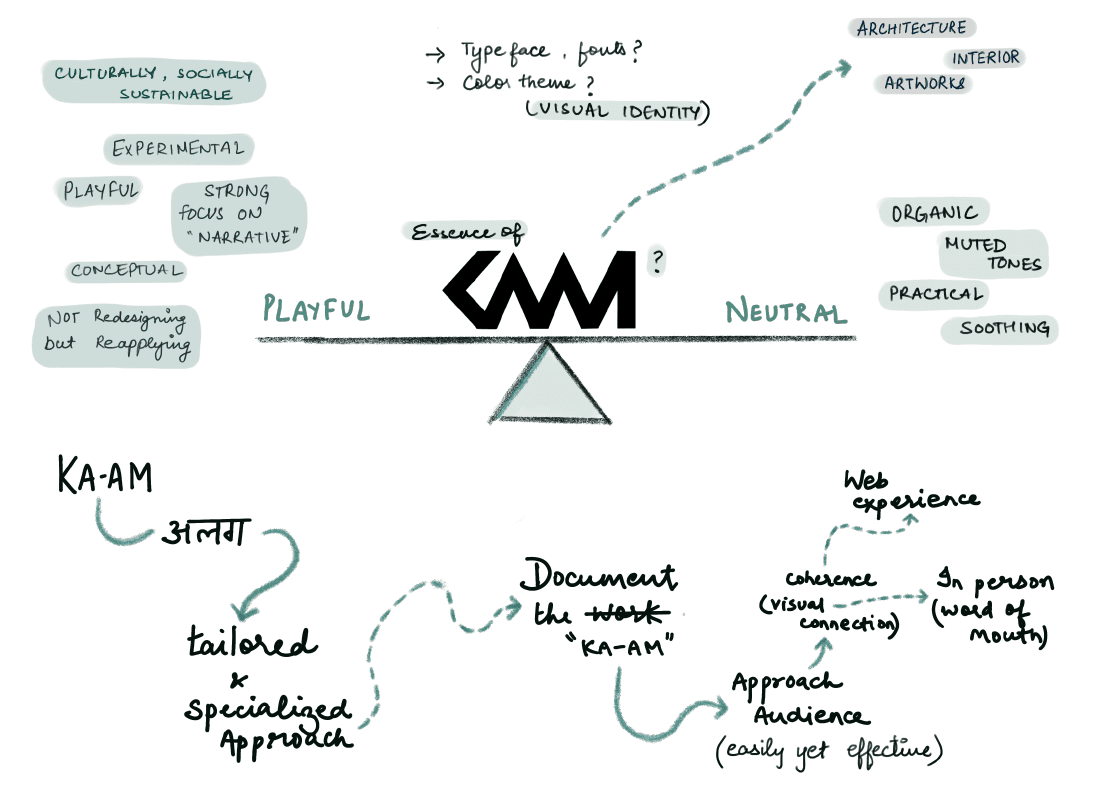 → Typeface, fonts?
→ Color theme?
(VISUAL IDENTITY)
ARCHITECTURE
INTERIOR
ARTWORKS
CULTURALLY, SOCIALLY
SUSTAINABLE
EXPERIMENTAL
PLAYFUL
STRONG
FOCUS ON
"NARRATIVE"
CONCEPTUAL
NOT Redesigning
but Reapplying
Essence of
KAAM
?
PLAYFUL
NEUTRAL
ORGANIC
MUTED
TONES
PRACTICAL
SOOTHING
KA-AM
अलग
tailored
&
Specialized
Approach
Document
the work
"KA-AM"
Approach
Audience
(easily yet effective)
coherence
(visual
connection)
Web
experience
In person
(word of
mouth)